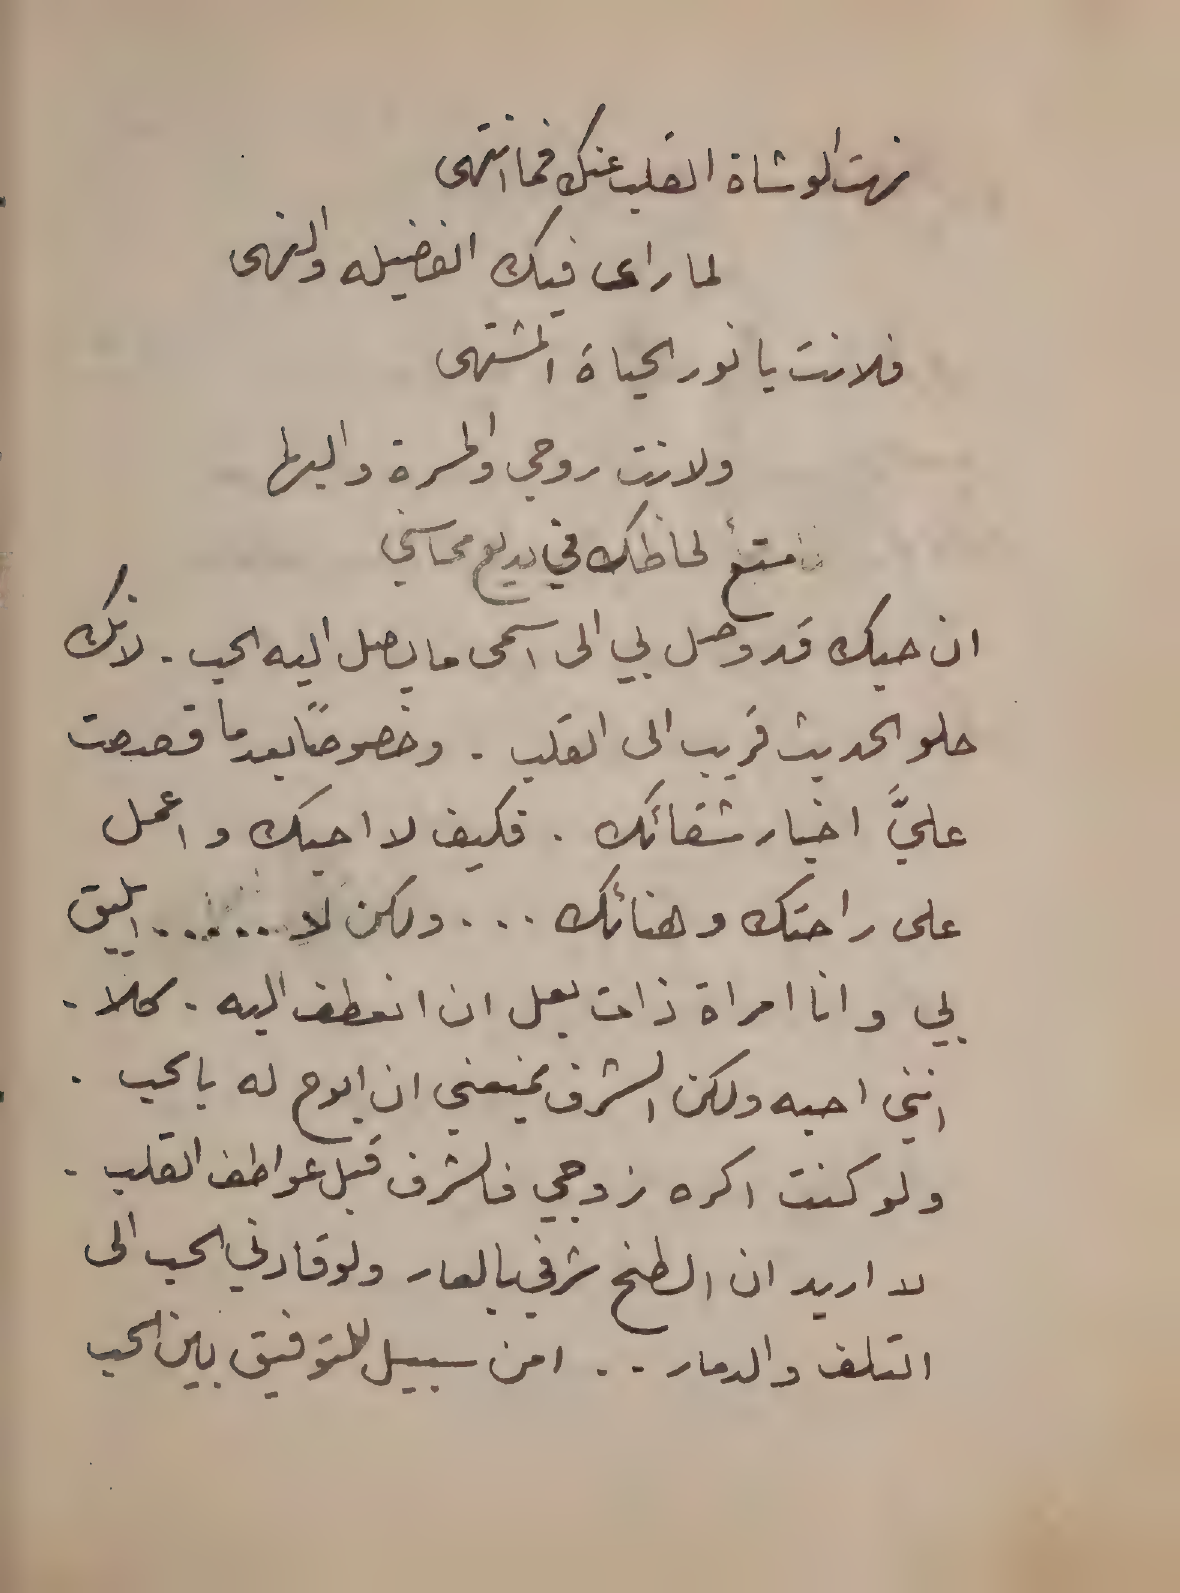 نهت الوشاة القلب عنك فما انتهى
لما راى فيك الفضيله والنهى
فلانت يا نور الحياة المشتهى
ولانت روحي والمسرة والبها
متع لحاظك في بديع محاسني
ان حبك قد وصل بي الى اسمى ما يصل اليه الحب . لانك
حلو الحديث قريب الى القلب . وخصوصًا بعد ما قصصت
عليَّ اخبار شقائك . فكيف لا احبك و اعمل
على راحتك و هنائك ... ولكن لا ...... ايليق
بي وانا امراة ذات بعل ان انعطف اليه . كلا .
انني احبه ولكن الشرف يمنعني ان ابوح له بالحب .
ولو كنت اكره زوجي فالشرف قبل عواطف القلب .
لا اريد ان الطخ شرفي بالعار ولو قادني الحب الى
التلف والدمار .. امن سبيل للتوفيق بين الحب